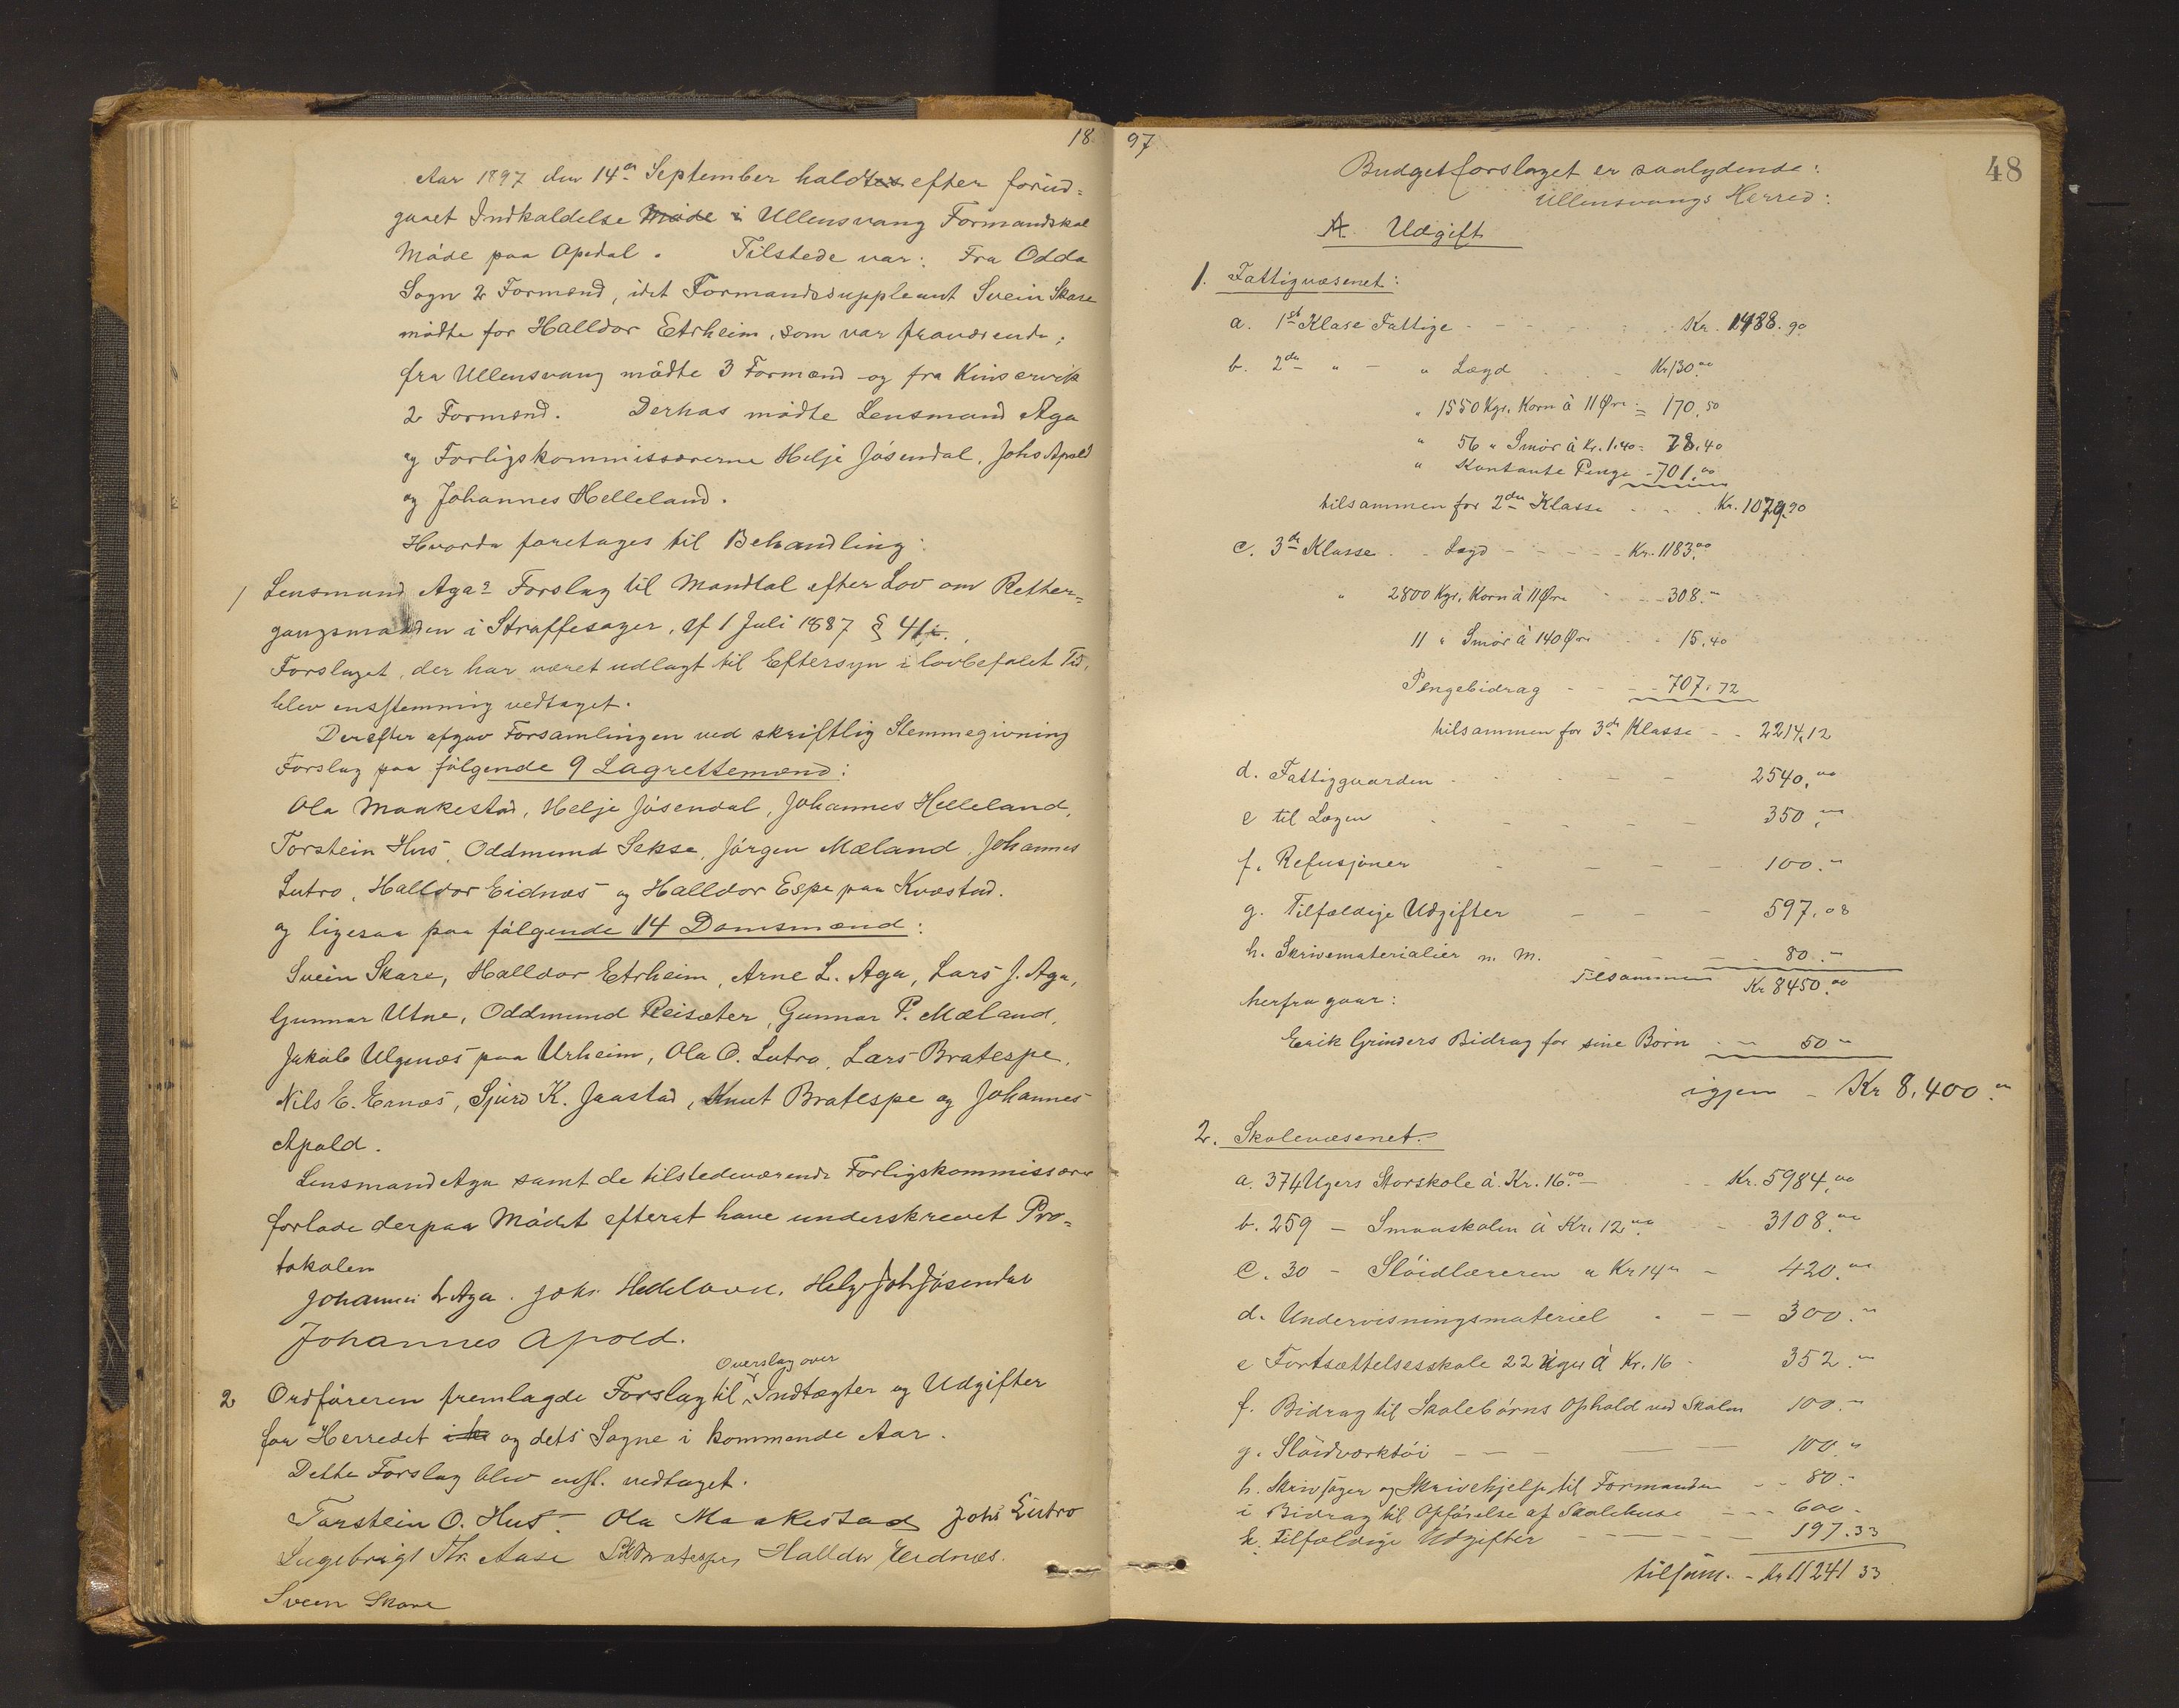 18
Aar 1897 den 14de September haldtes efter forud=
gaaet Indkaldelse Møde i Ullensvang Formandskab
Møde paa Apedal. Tilstede var: Fra Odda
Sogn 2 Formænd, idet Formandssuppleant Svein Skare
mødte for Halldor Etrheim, som var fraværende;
fra Ullensvang mødte 3 Formænd og fra Kinservik
2 Formænd. Derhos mødte Lensmand Aga
og Forligskommissærerne Helje Jösendal, Johs Apold
og Johannes Helleland.
Hvorda foretages til Behandling:
1 Lensmand Agas Forslag til Mandtal efter Lov om Retter=
gangsmaaden i Straffesager, af 1 Juli 1887 § 41.
Forslaget, der har været udlagt til Eftersyn i lovbefalet Tid,
blev enstemmig vedtaget.
Derefter afgav Forsamlingen ved skriftlig Stemmegivning
Forslag paa følgende 9 Lagrettemænd:
Ola Maakestad, Helje Jösendal, Johannes Helleland,
Torstein Hus, Oddmund Sekse, Jörgen Mæland, Johannes
Lutro, Halldor Eidnes og Halldor Espe paa Kvæstad.
og ligesaa paa følgende 14 Domsmænd:
Svein Skare, Halldor Etrheim, Arne L. Aga, Lars J. Aga,
Gunnar Utne, Oddmund Reisæter, Gunnar P. Mæland,
Jakob Ulgenes paa Urheim, Ola O. Lutro, Lars Bratespe,
Nils E. Ernes, Sjurd K. Jaastad, Knut Bratespe og Johannes
Apold.
Lensmand Aga samt de tilstedeværende Forligskommissærer
forlode derpaa Mødet efterat have underskrevet Pro=
tokolen
Johannes L Aga. Johs Helleland. Helje Joh Jösendal
Johannes Apold.
Overslag over
2 Ordføreren fremlagde Forslag til Indtægter og Udgifter
for Herredet og dets Sogne i kommende Aar.
Dette Forslag blev enst. vedtaget.
Torstein O. Hus. Ola Maakestad Johs Lutro
Ingebrigt Th. Aase Halldor Eidnes.
Svein Skare
97
48
Budgetforslaget er saalydende:
Ullensvangs Herred:
A Udgift
1. Fattigvæsenet:
a. 1ste Klase Fattige - - - Kr. 1488.90
b. 2den " - " Lægd - Kr 130.00
" 1550 Kgr. Korn à 11 Øre = 170,50
" 56 " Smør à Kr. 1.40 = 78.40
" Kontante Penge - 701.00
tilsammen for 2den Klasse - Kr. 1079.90
c. 3die Klasse - Lægd - - - Kr. 1183.00
" 2800 Kgr. Korn à 11 Øre - 308."
11 " Smør à 140 Øre - 15.40
Pengebidrag - - - 707.72
tilsammen for 3die Klasse - - 2214,12
d. Fattiggaarden - - - 2540,00
e til Lægen - - - 350,00
f. Refusjoner - - - 100."
g. Tilfældige Udgifter - - - 597.08
h. Skrivematerialier m. m. - - - 80."
Tilsammen Kr 8450.00
herfra gaar:
Eerik Grinders Bidrag for sine Børn - - 50 "
igjen - Kr 8,400."
2. Skolevæsenet.
a. 374 Ugers Storskole à Kr. 16.00 - Kr. 5984,00
b. 259 - Smaaskolen à Kr. 12.00 - 3108.00
c. 30 - Sløidlæreren a Kr 14 " - 420.00
d. Undervisningsmateriel - - - 300."
e Fortsættelsesskole 22 Uger à Kr. 16 - 352."
f. Bidrag til Skolebørns Ophold ved Skolen 100."
g. Sløidverktøi - - - 100."
h. Skrivsager og Skrivehjelp til Formanden - - 80.-
i Bidrag til Opførelse af Skolehuse - - - 600 -
k. Tilfældige Udgifter - - - 197.33
tilsam. - Kr 11241 33